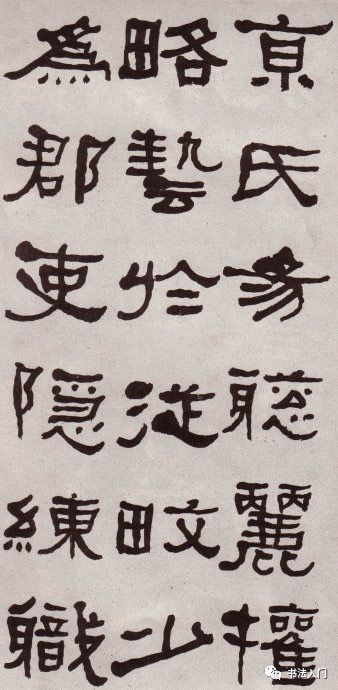 京氏易聰麗權
略藝於從畋少
為郡吏隱練職
书法入门